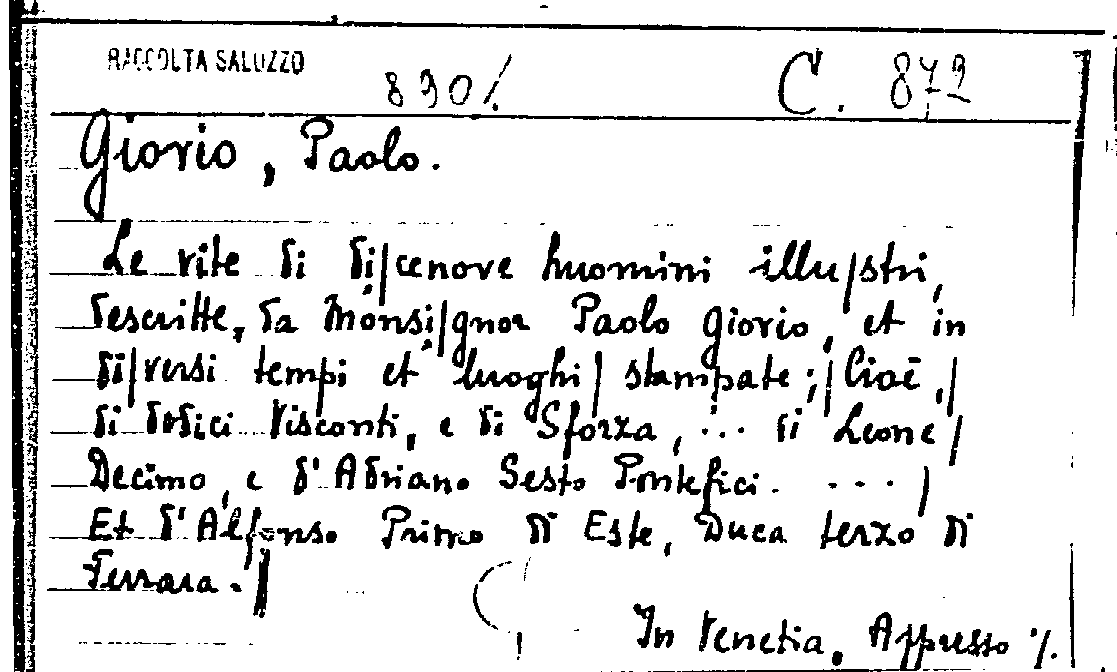 RACCOLTA SALUZZO 890 /. C. 872
Giovio, Paolo.
Le vite di di|cenove huomini illu|stri,
descritte, da Monsi|gnor Paolo Giovio, et in
di|versi tempi et luoghi| stampate; |Cioè,|
di dodici Visconti, e di Sforza, ... di Leone|
Decimo, e d'Adriano Sesto Pontefici. ....|
Et d'Alfonso Primo di Este, Duca terzo di
Ferrara.||
In Venetia, Appresso ·/.